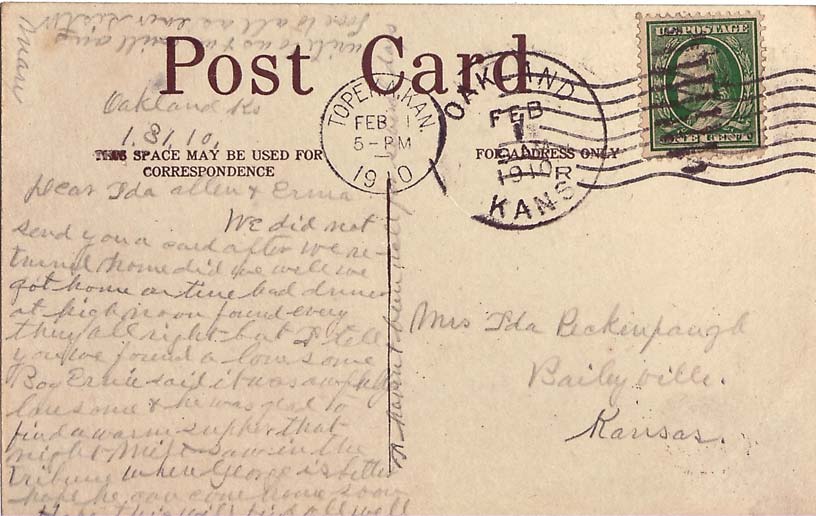 Post Card
TOPEKA, KAN.
FEB 1
5-PM
1910
OAKLAND
FEB
1
1910
R
KANS
U.S. POSTAGE
ONE CENT
THIS SPACE MAY BE USED FOR
CORRESPONDENCE
FOR ADDRESS ONLY
Oakland Ks
1.31,10,
Dear Ida allen & Erma
We did not
send you a card after we re-
turned home did we well we
got home on time had dinner
at high noon found every
thing all right but I tell
you we found a lonesome
Boy Ernie said it was awfully
lonesome & he was glad to
find a warm supper that
night I saw in the
Tribune where George is better
hope he can come home soon
Hope this will find all well
Mrs Ida Peckenpaugh
Baileyville.
Kansas.
I havent been
write as you will and
love to all as ever sister
Mary